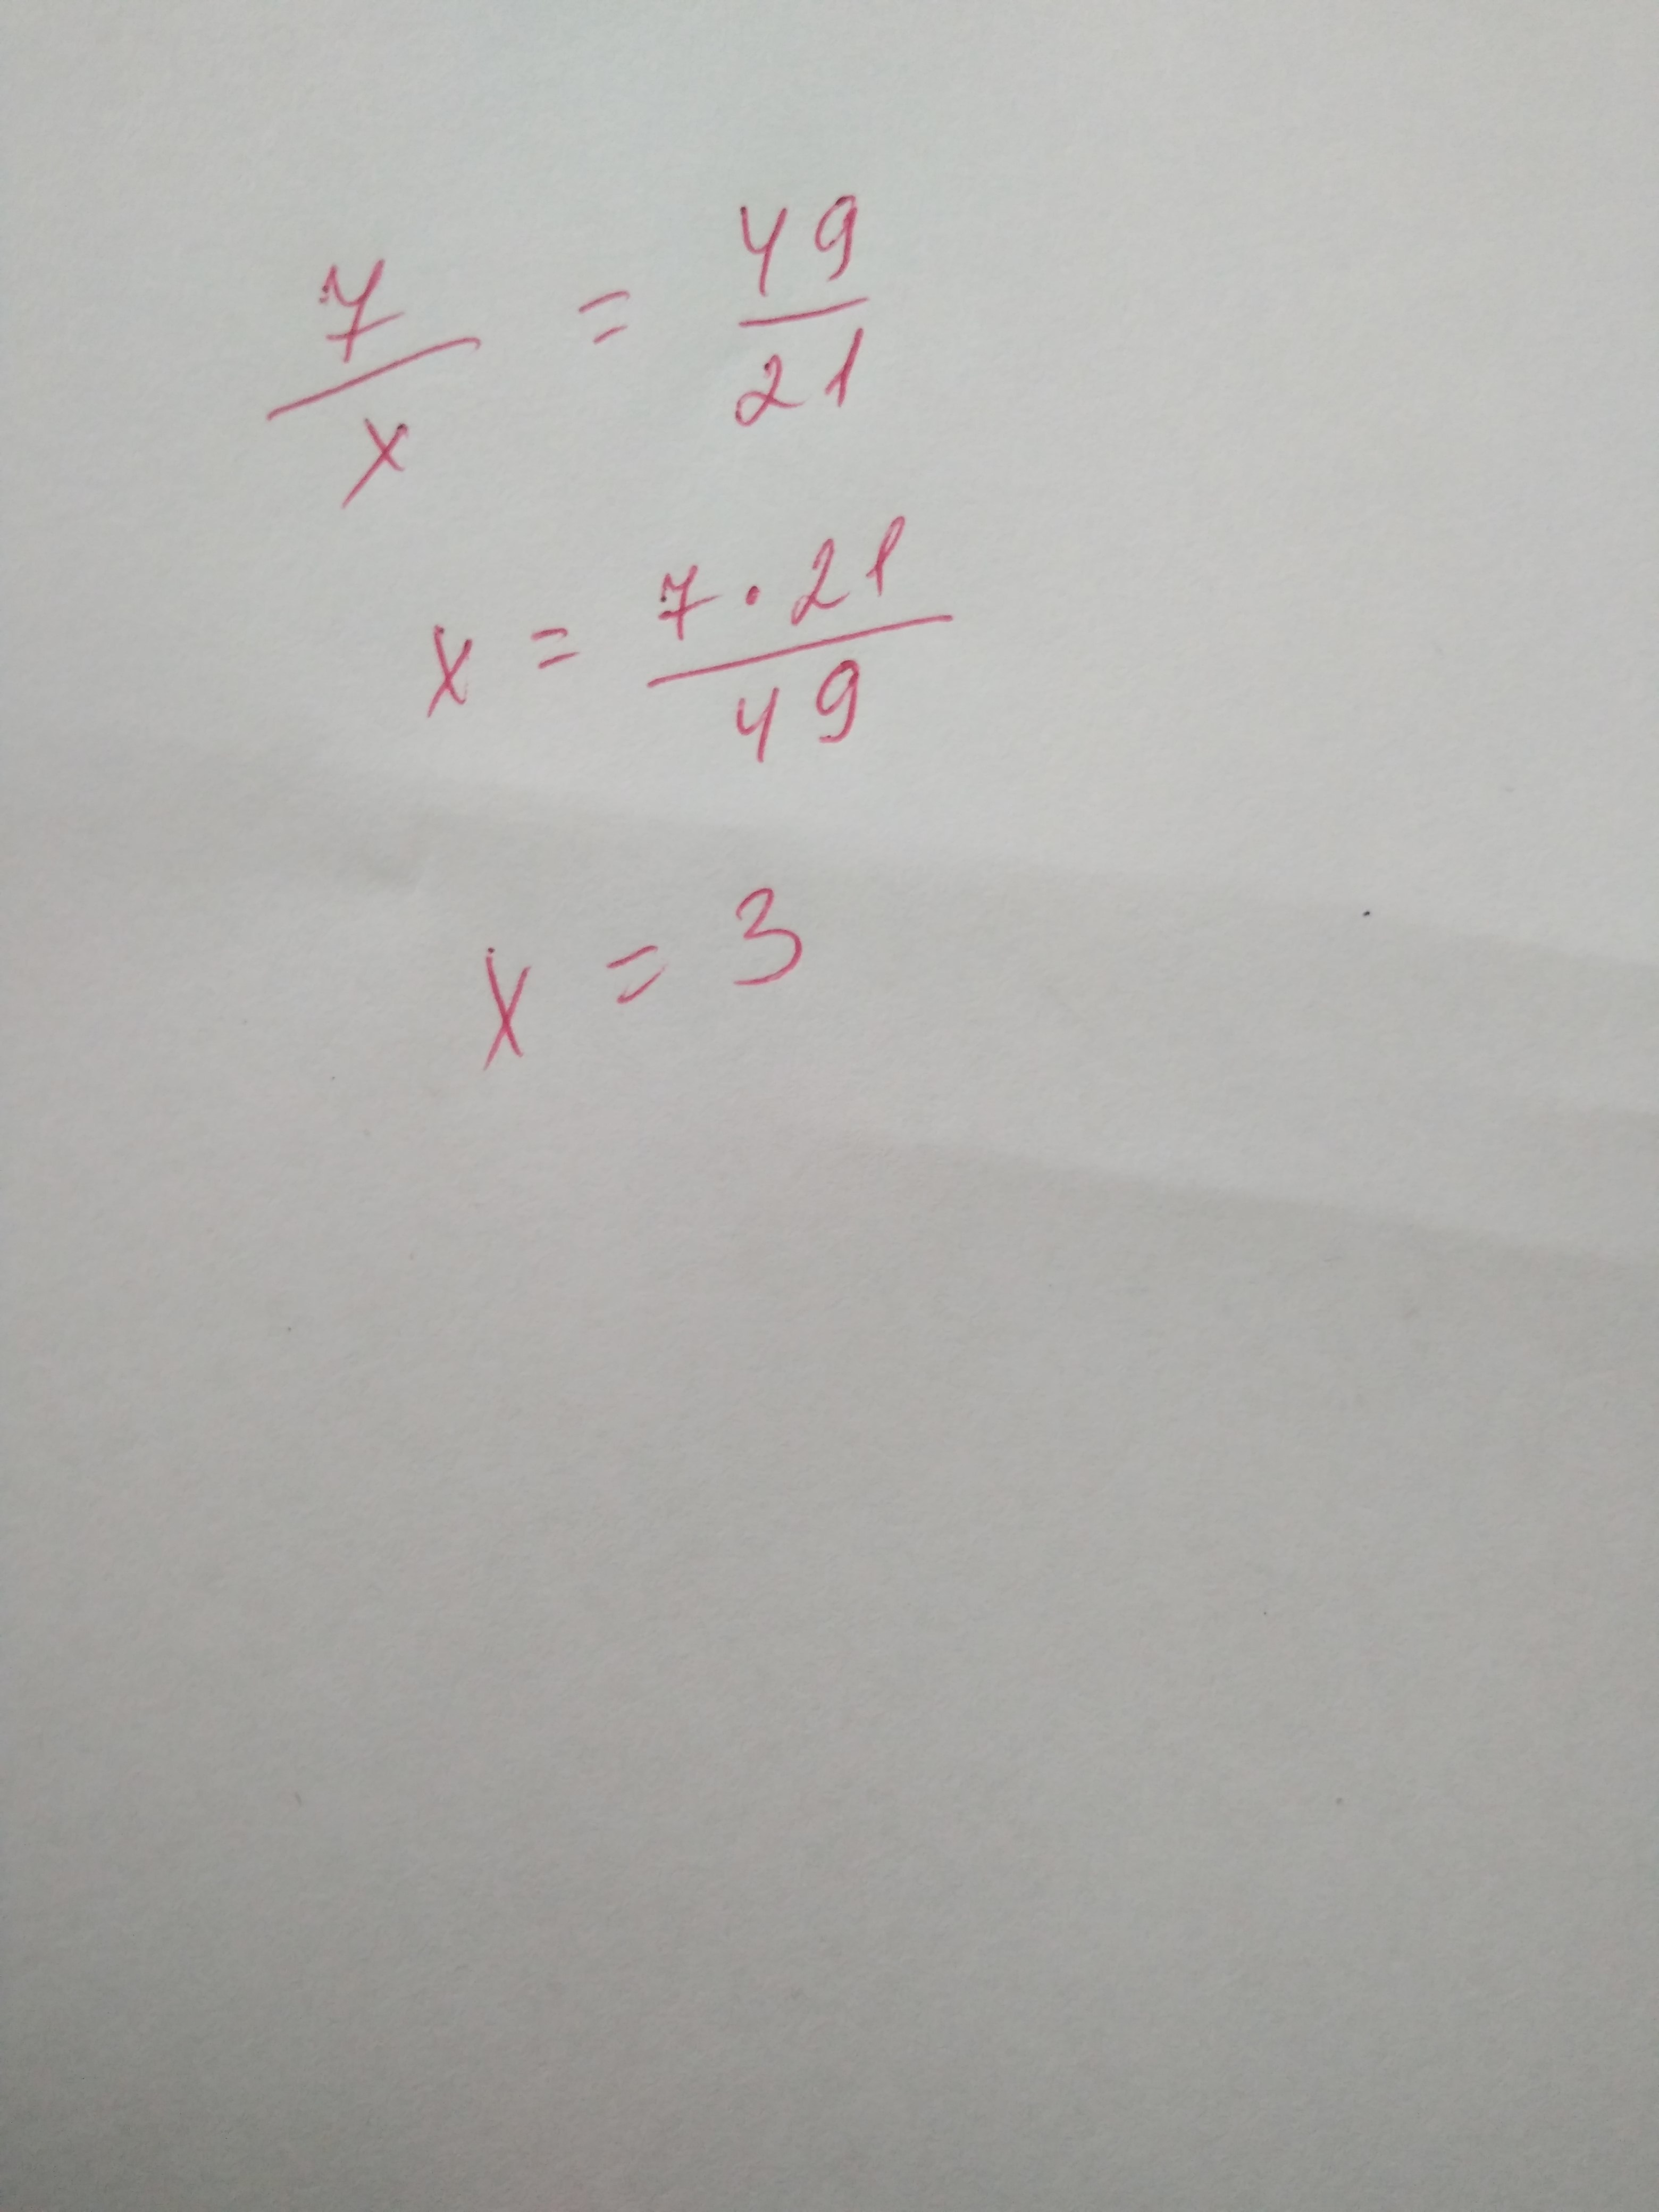 7/x = 49/21
x = 7·21/49
x = 3